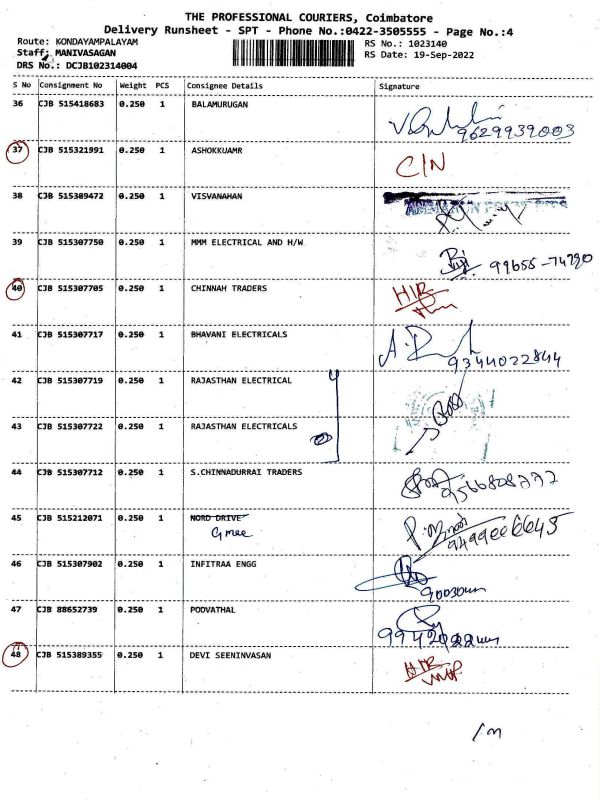 THE PROFESSIONAL COURIERS, Coimbatore
Delivery Runsheet - SPT - Phone No.:0422-3505555 - Page No.:4
Route: KONDAYAMPALAYAM RS No.: 1023140
Staff: MANIVASAGAN RS Date: 19-Sep-2022
DRS No.: DCJB102314004
S No Consignment No Weight PCS Consignee Details Signature
36 CJB 515418683 0.250 1 BALAMURUGAN
9629939003
37 CJB 515321991 0.250 1 ASHOKKUAMR C/N
38 CJB 515389472 0.250 1 VISVANAHAN
39 CJB 515307750 0.250 1 MMM ELECTRICAL AND H/W
99655-74290
40 CJB 515307705 0.250 1 CHINNAH TRADERS
41 CJB 515307717 0.250 1 BHAVANI ELECTRICALS
9344022844
42 CJB 515307719 0.250 1 RAJASTHAN ELECTRICAL
43 CJB 515307722 0.250 1 RAJASTHAN ELECTRICALS
44 CJB 515307712 0.250 1 S.CHINNADURRAI TRADERS
45 CJB 515212071 0.250 1 NORD DRIVE
46 CJB 515307902 0.250 1 INFITRAA ENGG
47 CJB 88652739 0.250 1 POOVATHAL
48 CJB 515389355 0.250 1 DEVI SEENINVASAN